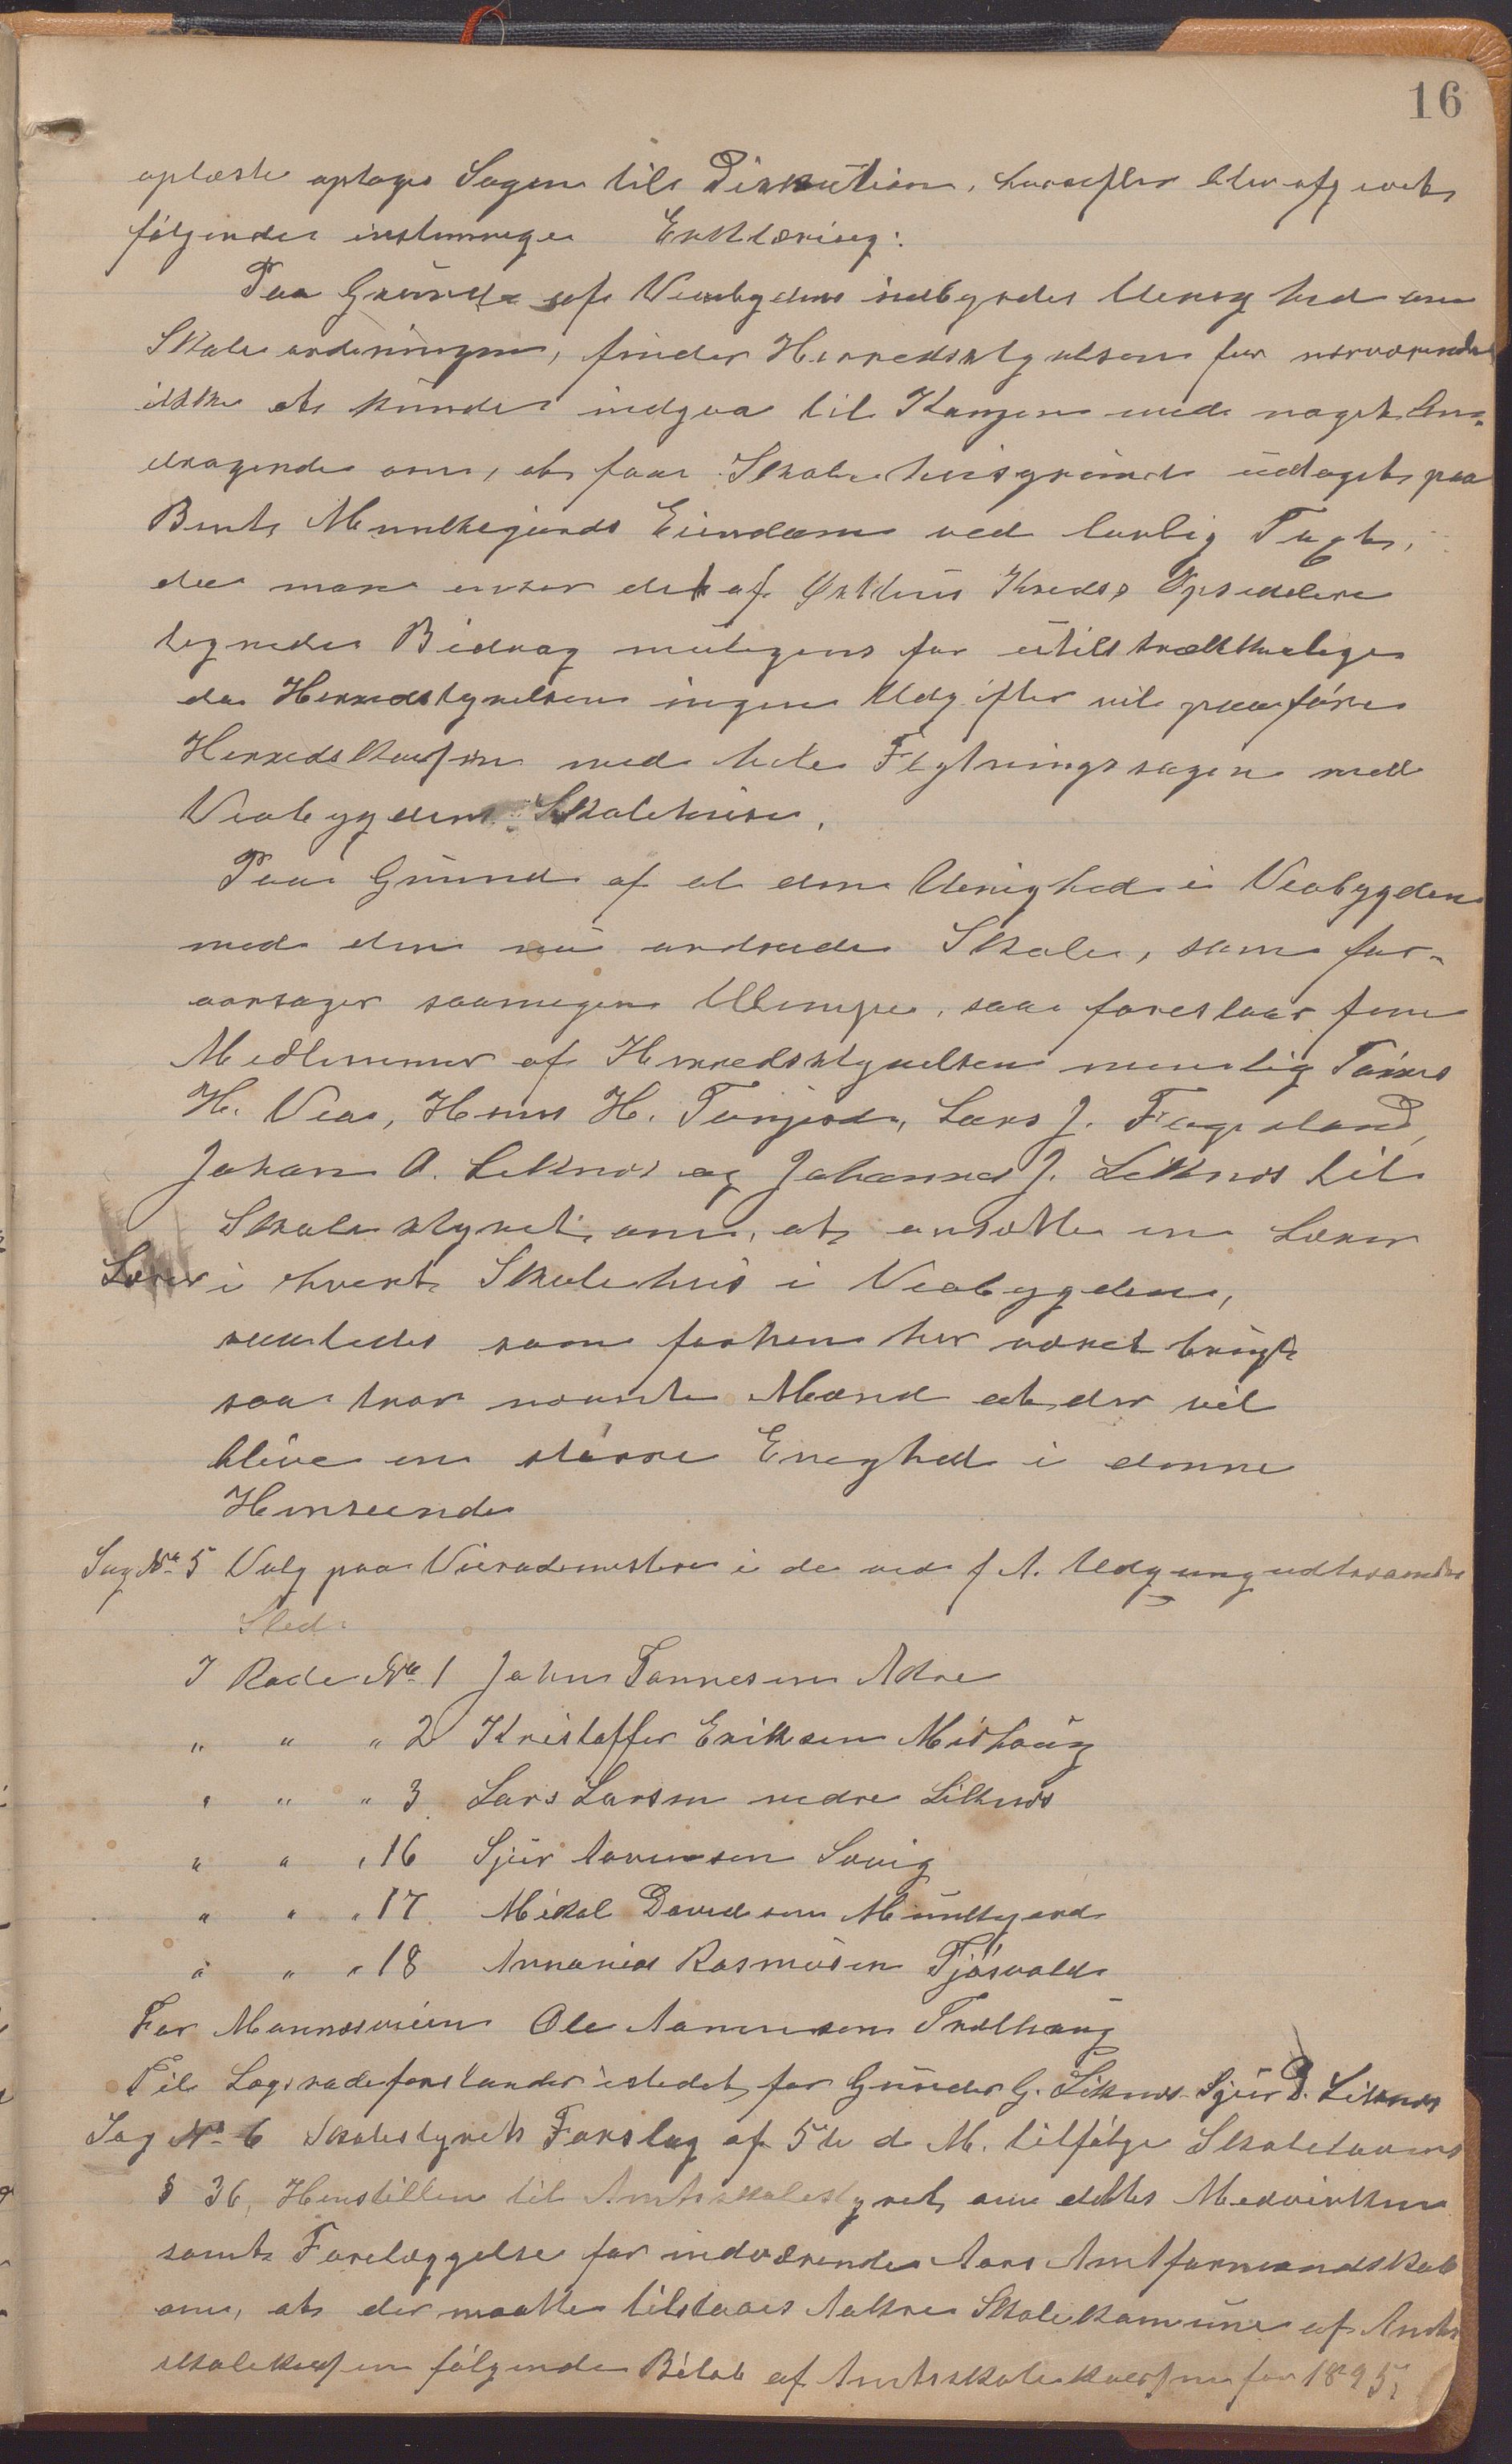 16
oplæste optoges Sagen til Diskution, hvorefter blev afgivet
følgende enstemmige Erklæring:
Paa Grund af Veabygdens indbyrdes Uenighed om
Skoleordningen, finder Herredstyrelsen for nærværende
ikke at kunde indgaa til Kongen med noget An-
dragende om, at faa Skolehusgrund udtaget paa
Bent Munkejords Eiendom ved lovlig Tagt,
da man anser det af Østhus Kreds's Opsidere
tegnede Bidrag muligens for utilstrækkelige
da Herredstyrelsen ingen Udgifter vil paaføre
Herredskassen med hele Flytningssagen med
Veabygdens Skolehuse.
Paa Grund af al den Uenighed i Veabygden
med den nu ordnede Skole, som for-
aarsager saamegen Ulempe, saa foreslaar fem
Medlemmer af Herredstyrelsen nemlig Tørres
H. Vea, Hans H. Tangjerd, Lars J. Fageland,
Johan A. Liknes og Johannes J. Liknes til
Skolestyret om, at ansætte en Lærer
Lærer i hvert Skolehus i Veabygden,
saaledes som forhen har været brugt
saa tror nævnte Mænd at der vil
blive en større Enighed i denne
Henseende
Sag No 5 Valg paa Vierodemestre i de ved f A. Udgang udtrædendes
Sted.
I Rode No 1 John Tønnesen Akre
" " " 2 Kristoffer Eriksen Mishaug
" " " 3 Lars Larsen nedre Liknes
" " " 16 Sjur Aamundsen Sævig
" " " 17 Mikal Davidsen Munkejord
" " " 18 Annanias Rasmusen Tjøsvold
For Mannesveien Ole Aamundsen Trælhaug
Til Lagsrodeforstander istedet for Gunder G. Liknes Sjur D. Liknes
Sag No 6 Skolestyrets Forslag af 5te d M. tilfølge Skolelovens
§ 36, Henstillen til Amtsskolestyret, om dettes Medvirken
samt Forelæggelse for indværende Aars Amtformandskab
om, at der maatte tilstaaes Aakre Skolekomune af Amts
skolekassen følgende Beløb af Amtsskolekassen for 1895;